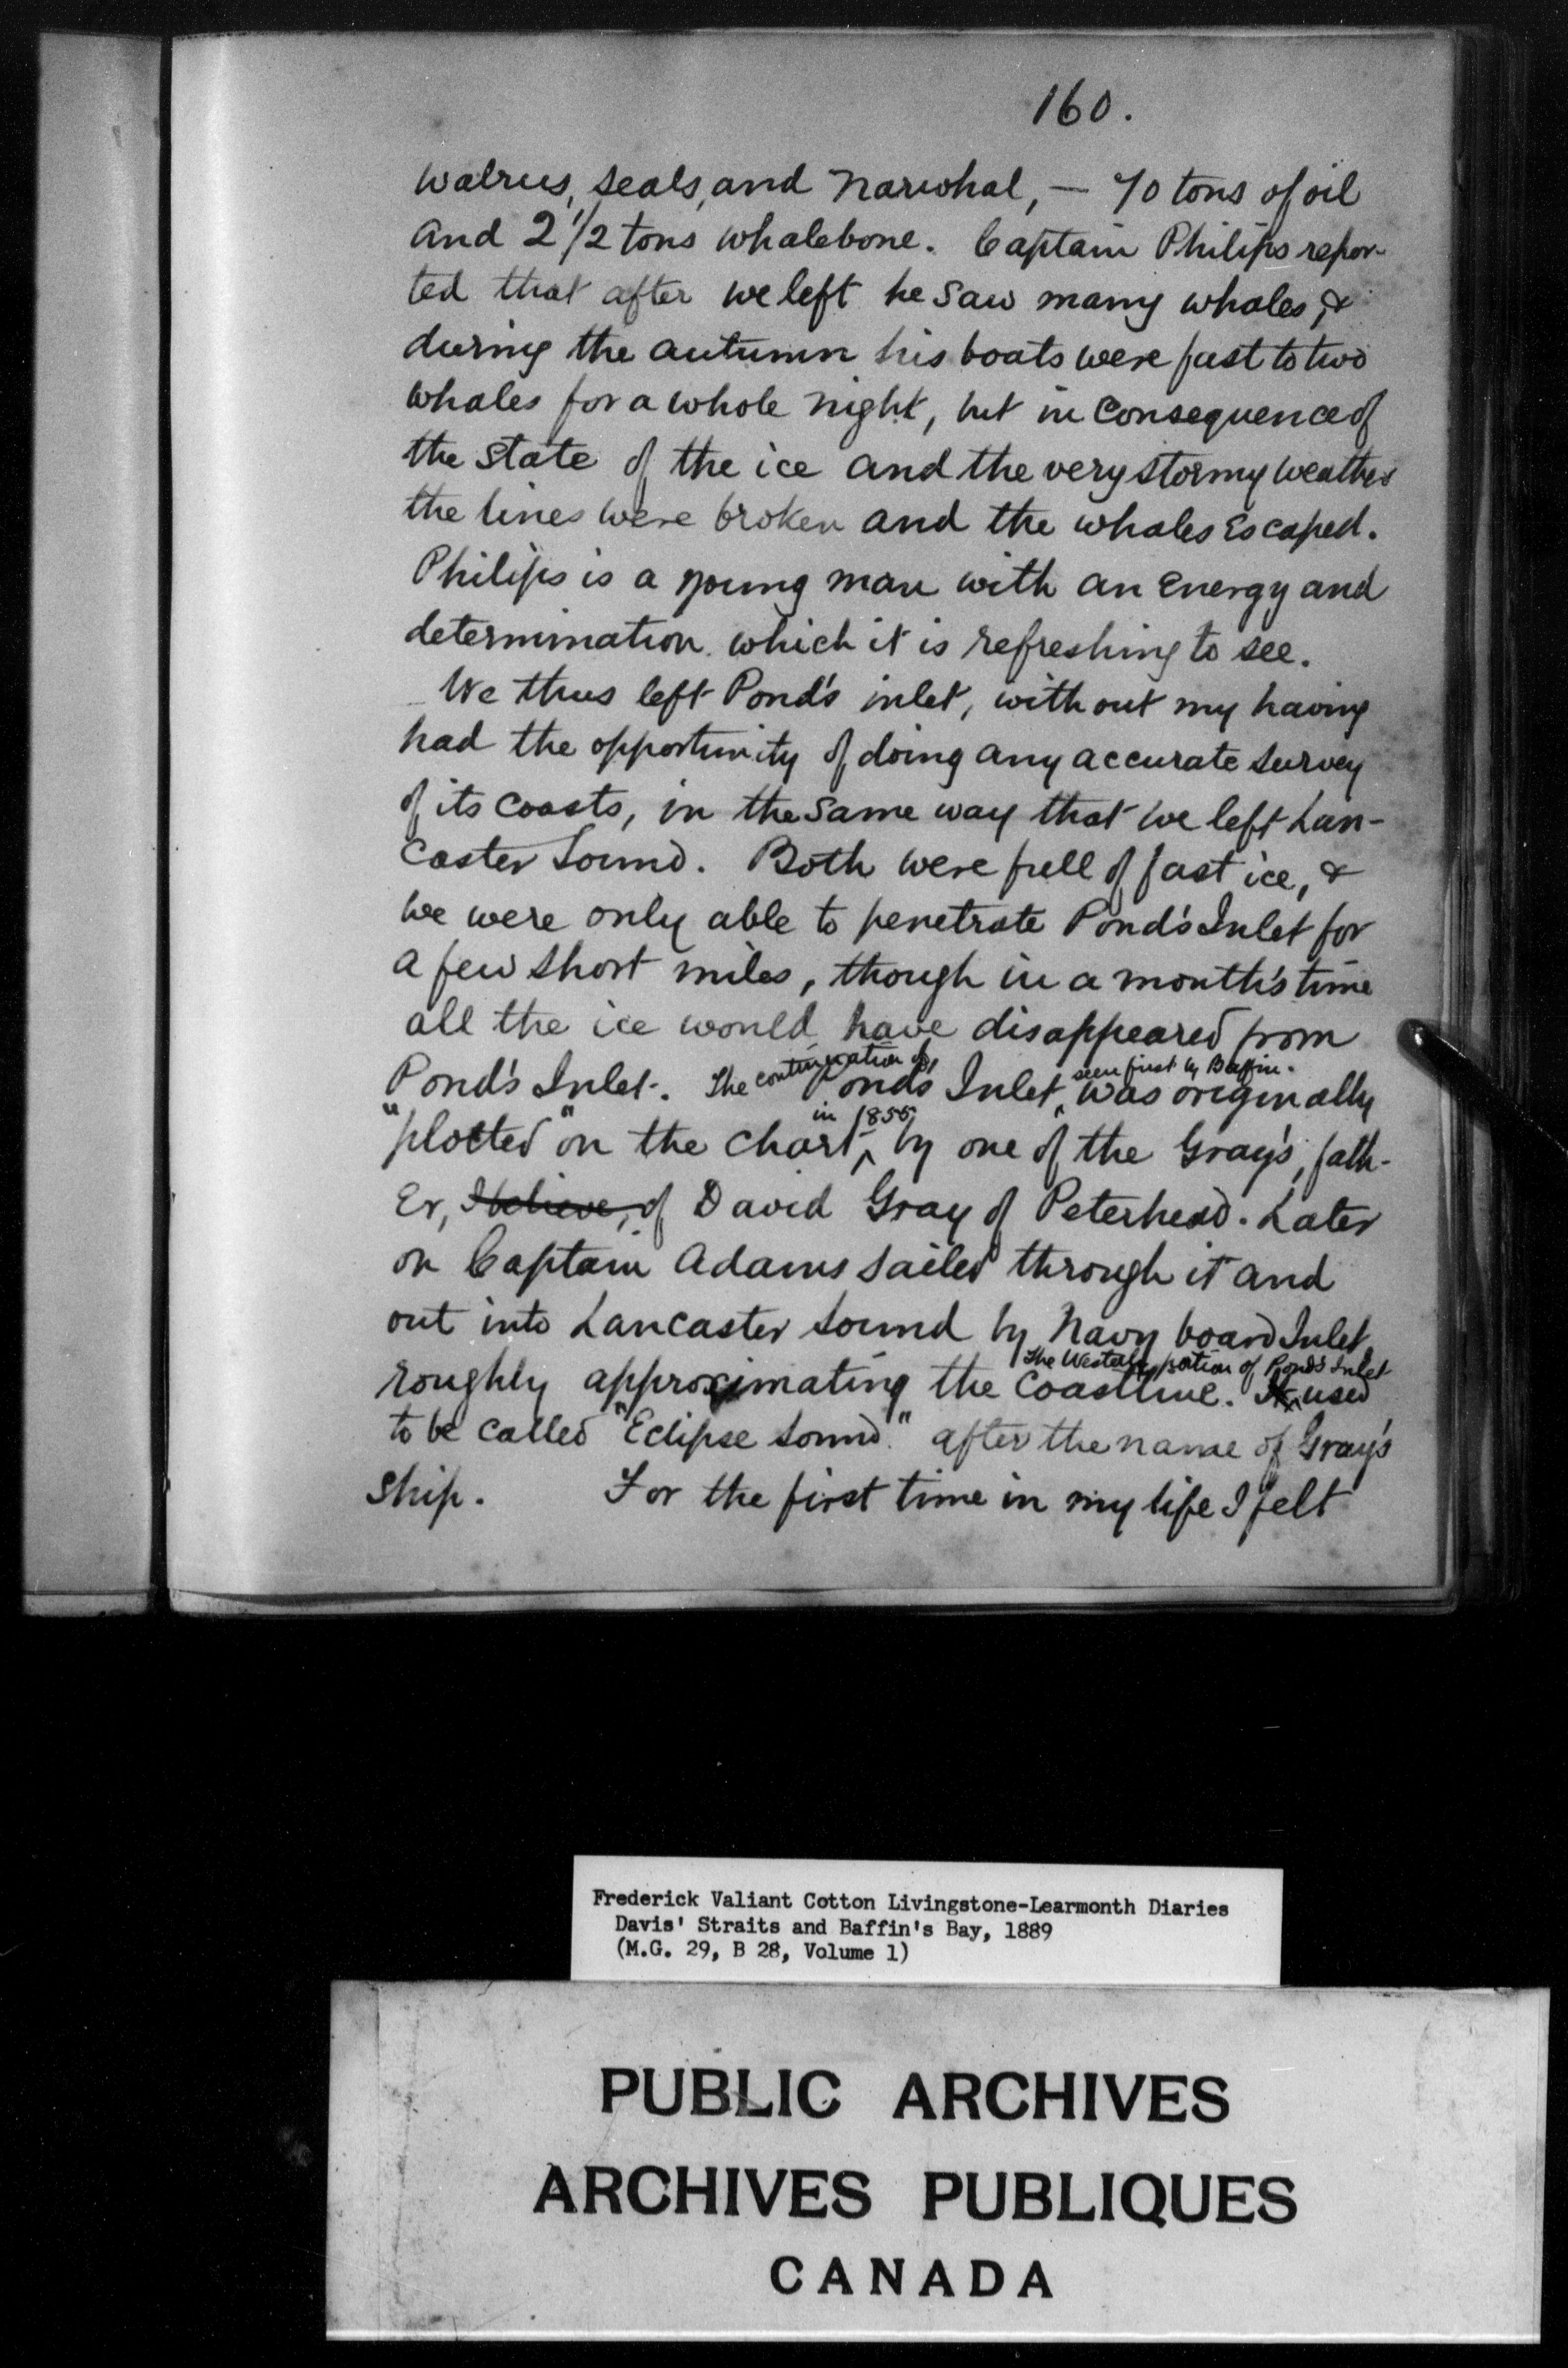 160.
Walrus, seals, and Narwhal, — 70 tons of oil
and 2 1/2 tons whalebone. Captain Philips repor-
ted that after we left he saw many whales, &
during the autumn his boats were fast to two
whales for a whole night, but in consequence of
the state of the ice and the very stormy weather
the lines were broken and the whales escaped.
Philips is a young man with an energy and
determination which it is refreshing to see.
We thus left Pond's inlet, without my having
had the opportunity of doing any accurate survey
of its coasts, in the same way that we left Lan-
caster Sound. Both were full of fast ice, &
we were only able to penetrate Pond's Inlet for
a few short miles, though in a month's time
all the ice would have disappeared from
Pond's Inlet. The continuation of Pond's Inlet, seen first by Baffin. was originally
"plotted" on the chart, in 1855, by one of the Gray's, fath-
er, I believe, of David Gray of Peterhead. Later
on Captain Adams sailed through it and
out into Lancaster Sound by Navy board Inlet
roughly approximating the coastline. It The Westerly portion of Pond's Inlet used
to be called "Eclipse Sound." after the name of Gray's
ship. For the first time in my life I felt
Frederick Valiant Cotton Livingstone-Learmonth Diaries
Davis' Straits and Baffin's Bay, 1889
(M.G. 29, B 28, Volume 1)
PUBLIC ARCHIVES
ARCHIVES PUBLIQUES
CANADA